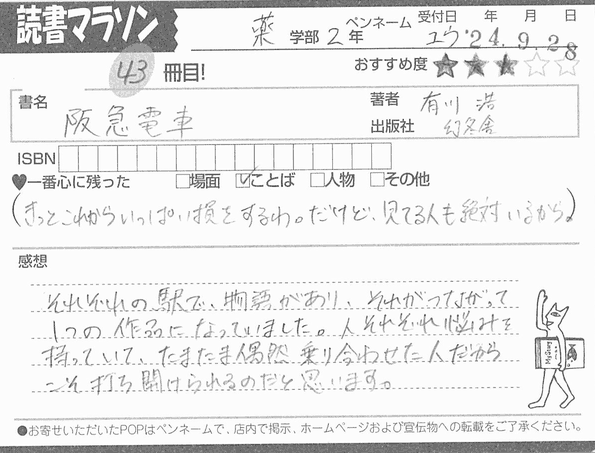 読書マラソン
薬 学部 2 年 ペンネーム ユウ 受付日 年 月 日 '24. 9. 28
43 冊目!
おすすめ度 ★★★☆☆
書名 阪急電車
著者 有川 浩
出版社 幻冬舎
ISBN
♥一番心に残った □場面 ☑ことば □人物 □その他
(きっとこれからいっぱい損をするわ。だけど、見てる人も絶対いるから。)
感想
それぞれの駅で、物語があり、それがつながって
1つの作品になっていました。人それぞれ悩みを
持っていて、たまたま偶然乗り合わせた人だから
こそ打ち開けられるのだと思います。
●お寄せいただいたPOPはペンネームで、店内で掲示、ホームページおよび宣伝物への転載をご了承ください。